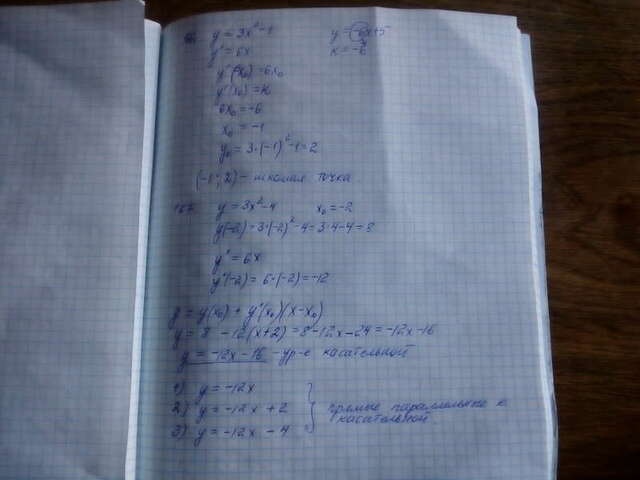 y = 3x² - 1 y = -6x+5
y' = 6x k = -6
y'(x₀) = 6x₀
y'(x₀) = k
6x₀ = -6
x₀ = -1
y₀ = 3·(-1)² - 1 = 2
(-1; 2) - искомая точка
y = 3x² - 4 x₀ = -2
y(-2) = 3·(-2)² - 4 = 3·4 - 4 = 8
y' = 6x
y'(-2) = 6·(-2) = -12
y = y(x₀) + y'(x₀)(x - x₀)
y = 8 - 12(x+2) = 8 - 12x - 24 = -12x - 16
y = -12x - 16 - ур-е касательной
1) y = -12x
2) y = -12x + 2 прямые параллельные к
касательной
3) y = -12x - 4